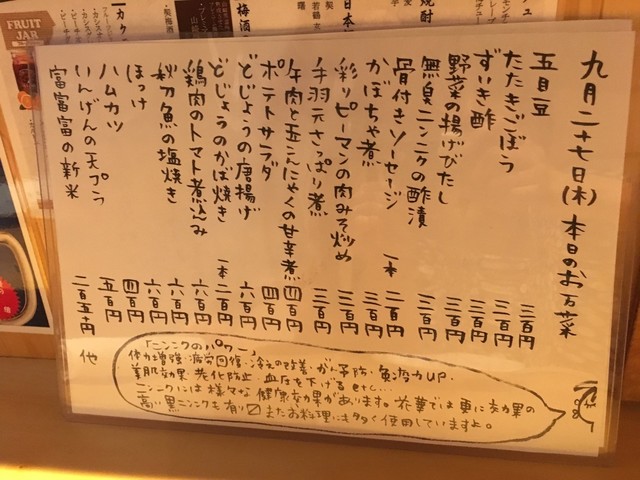 九月二十七日(木) 本日のお万菜
五目豆 三百円
たたきごぼう 三百円
ずいき酢 三百円
野菜の揚げびたし 三百円
無臭ニンニクの酢漬 三百円
骨付きソーセージ 一本 二百円
かぼちゃ煮 三百円
彩りピーマンの肉みそ炒め 三百円
手羽元さっぱり煮 三百円
牛肉と玉こんにゃくの甘辛煮 四百円
ポテトサラダ 四百円
どじょうの唐揚げ 六百円
どじょうのかば焼き 一本 二百円
鶏肉のトマト煮込み 六百円
秋刀魚の塩焼き 六百円
ほっけ 六百円
ハムカツ 四百円
いんげんの天プラ 五百円
富富富の新米 二百五十円
他
「ニンニクのパワー」
体力増強・疲労回復・冷えの改善・がん予防・免疫力UP・
美肌効果 老化防止 血圧を下げる etc…
ニンニクには様々な健康効果があります。花華では更に効果の
高い黒ニンニクも有り〼 またお料理にも多く使用していますよ。
FRUIT
JAR
梅酒
日本
焼酎